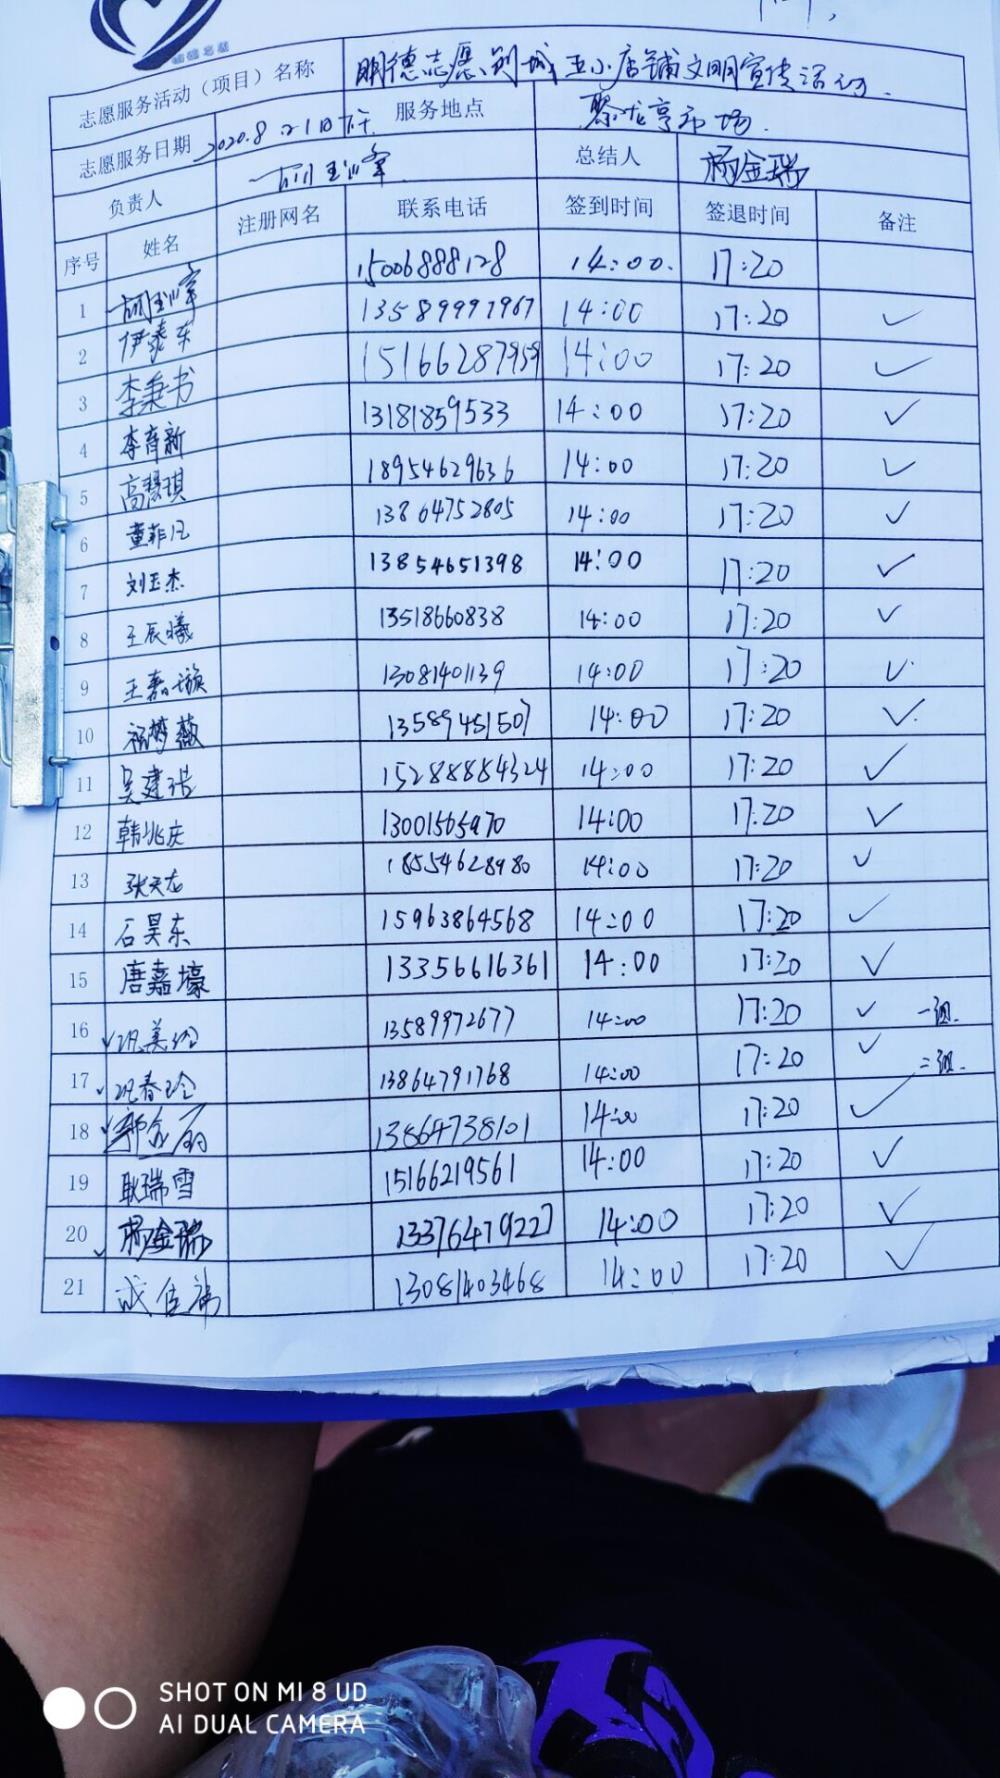 志愿服务活动（项目）名称 明德志愿 创城 五小店铺文明宣传活动.
志愿服务日期 2020.8.21日下午 服务地点
负责人 总结人 杨金瑞
序号 姓名 注册网名 联系电话 签到时间 签退时间 备注
1 15006888128 14:00. 17:20
2 伊泰东 13589997967 14:00 17:20 ✓
3 李秉书 15166287959 14:00 17:20 ✓
4 李育新 13181859533 14:00 17:20 ✓
5 高慧琪 18954629636 14:00 17:20 ✓
6 董菲凡 13864752805 14:00 17:20 ✓
7 刘玉杰 13854651398 14:00 17:20 ✓
8 王辰曦 13518660838 14:00 17:20 ✓
9 王嘉璇 13081401139 14:00 17:20 ✓
10 13589451507 14:00 17:20 ✓
11 吴建浩 15288884324 14:00 17:20 ✓
12 韩兆庆 13001565970 14:00 17:20 ✓
13 张天龙 18554628980 14:00 17:20 ✓
14 石昊东 15963864568 14:00 17:20 ✓
15 唐嘉壕 13356616361 14:00 17:20 ✓
16 13589972677 14:00 17:20 ✓ 一组.
17 13864791768 14:00 17:20 ✓ 二组.
18 13864738101 14:00 17:20 ✓
19 耿瑞雪 15166219561 14:00 17:20 ✓
20 杨金瑞 13376479227 14:00 17:20 ✓
21 13081403468 14:00 17:20 ✓
SHOT ON MI 8 UD
AI DUAL CAMERA